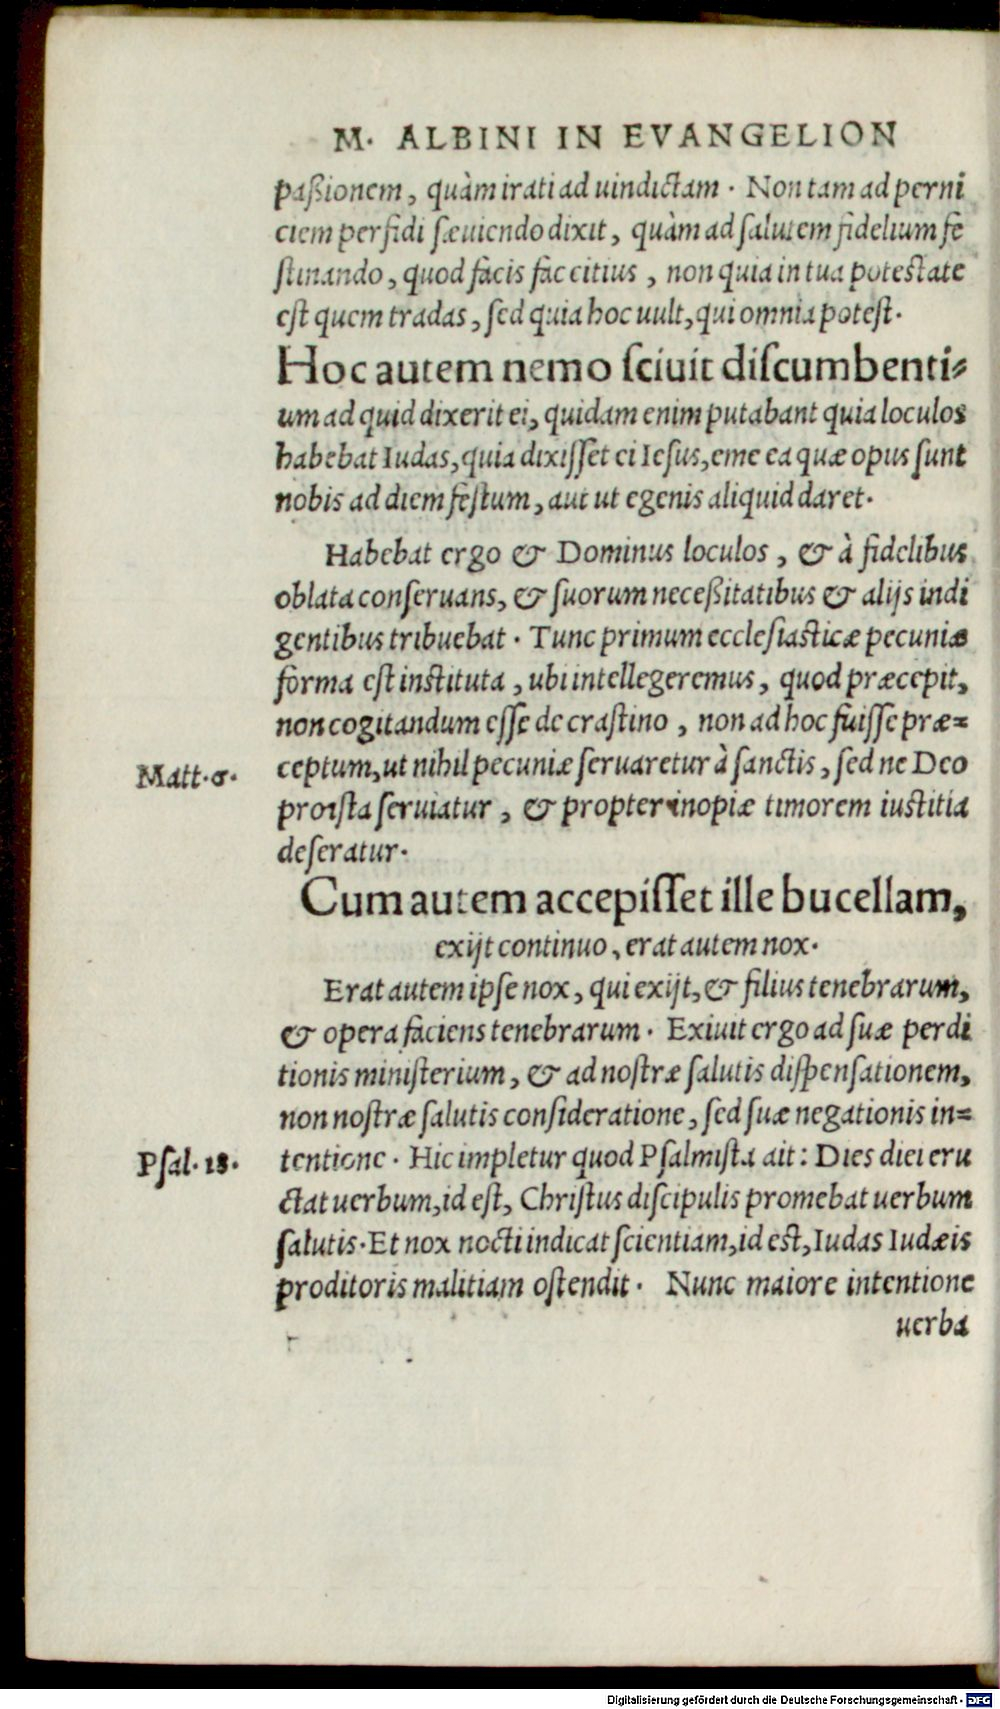 M. ALBINI IN EVANGELION
paßionem, quàm irati ad uindictam. Non tam ad perni
ciem perfidi sæuiendo dixit, quàm ad salutem fidelium fe
stinando, quod facis fac citius, non quia in tua potestate
est quem tradas, sed quia hoc uult, qui omnia potest.
Hoc autem nemo sciuit discumbenti=
um ad quid dixerit ei, quidam enim putabant quia loculos
habebat Iudas, quia dixisset ei Iesus, eme ea quæ opus sunt
nobis ad diem festum, aut ut egenis aliquid daret.
Habebat ergo & Dominus loculos, & à fidelibus
oblata conseruans, & suorum neceßitatibus & alijs indi
gentibus tribuebat. Tunc primum ecclesiasticæ pecuniæ
forma est instituta, ubi intellegeremus, quod præcepit,
non cogitandum esse de crastino, non ad hoc fuisse præ=
Matt. 6. ceptum, ut nihil pecuniæ seruaretur à sanctis, sed ne Deo
pro ista seruiatur, & propter inopiæ timorem iustitia
deseratur.
Cum autem accepisset ille bucellam,
exijt continuo, erat autem nox.
Erat autem ipse nox, qui exijt, & filius tenebrarum,
& opera faciens tenebrarum. Exiuit ergo ad suæ perdi
tionis ministerium, & ad nostræ salutis dispensationem,
non nostræ salutis consideratione, sed suæ negationis in=
Psal. 18. tentione. Hic impletur quod Psalmista ait: Dies diei eru
ctat uerbum, id est, Christus discipulis promebat uerbum
salutis. Et nox nocti indicat scientiam, id est, Iudas Iudæis
proditoris malitiam ostendit. Nunc maiore intentione
uerba
Digitalisierung gefördert durch die Deutsche Forschungsgemeinschaft - DFG